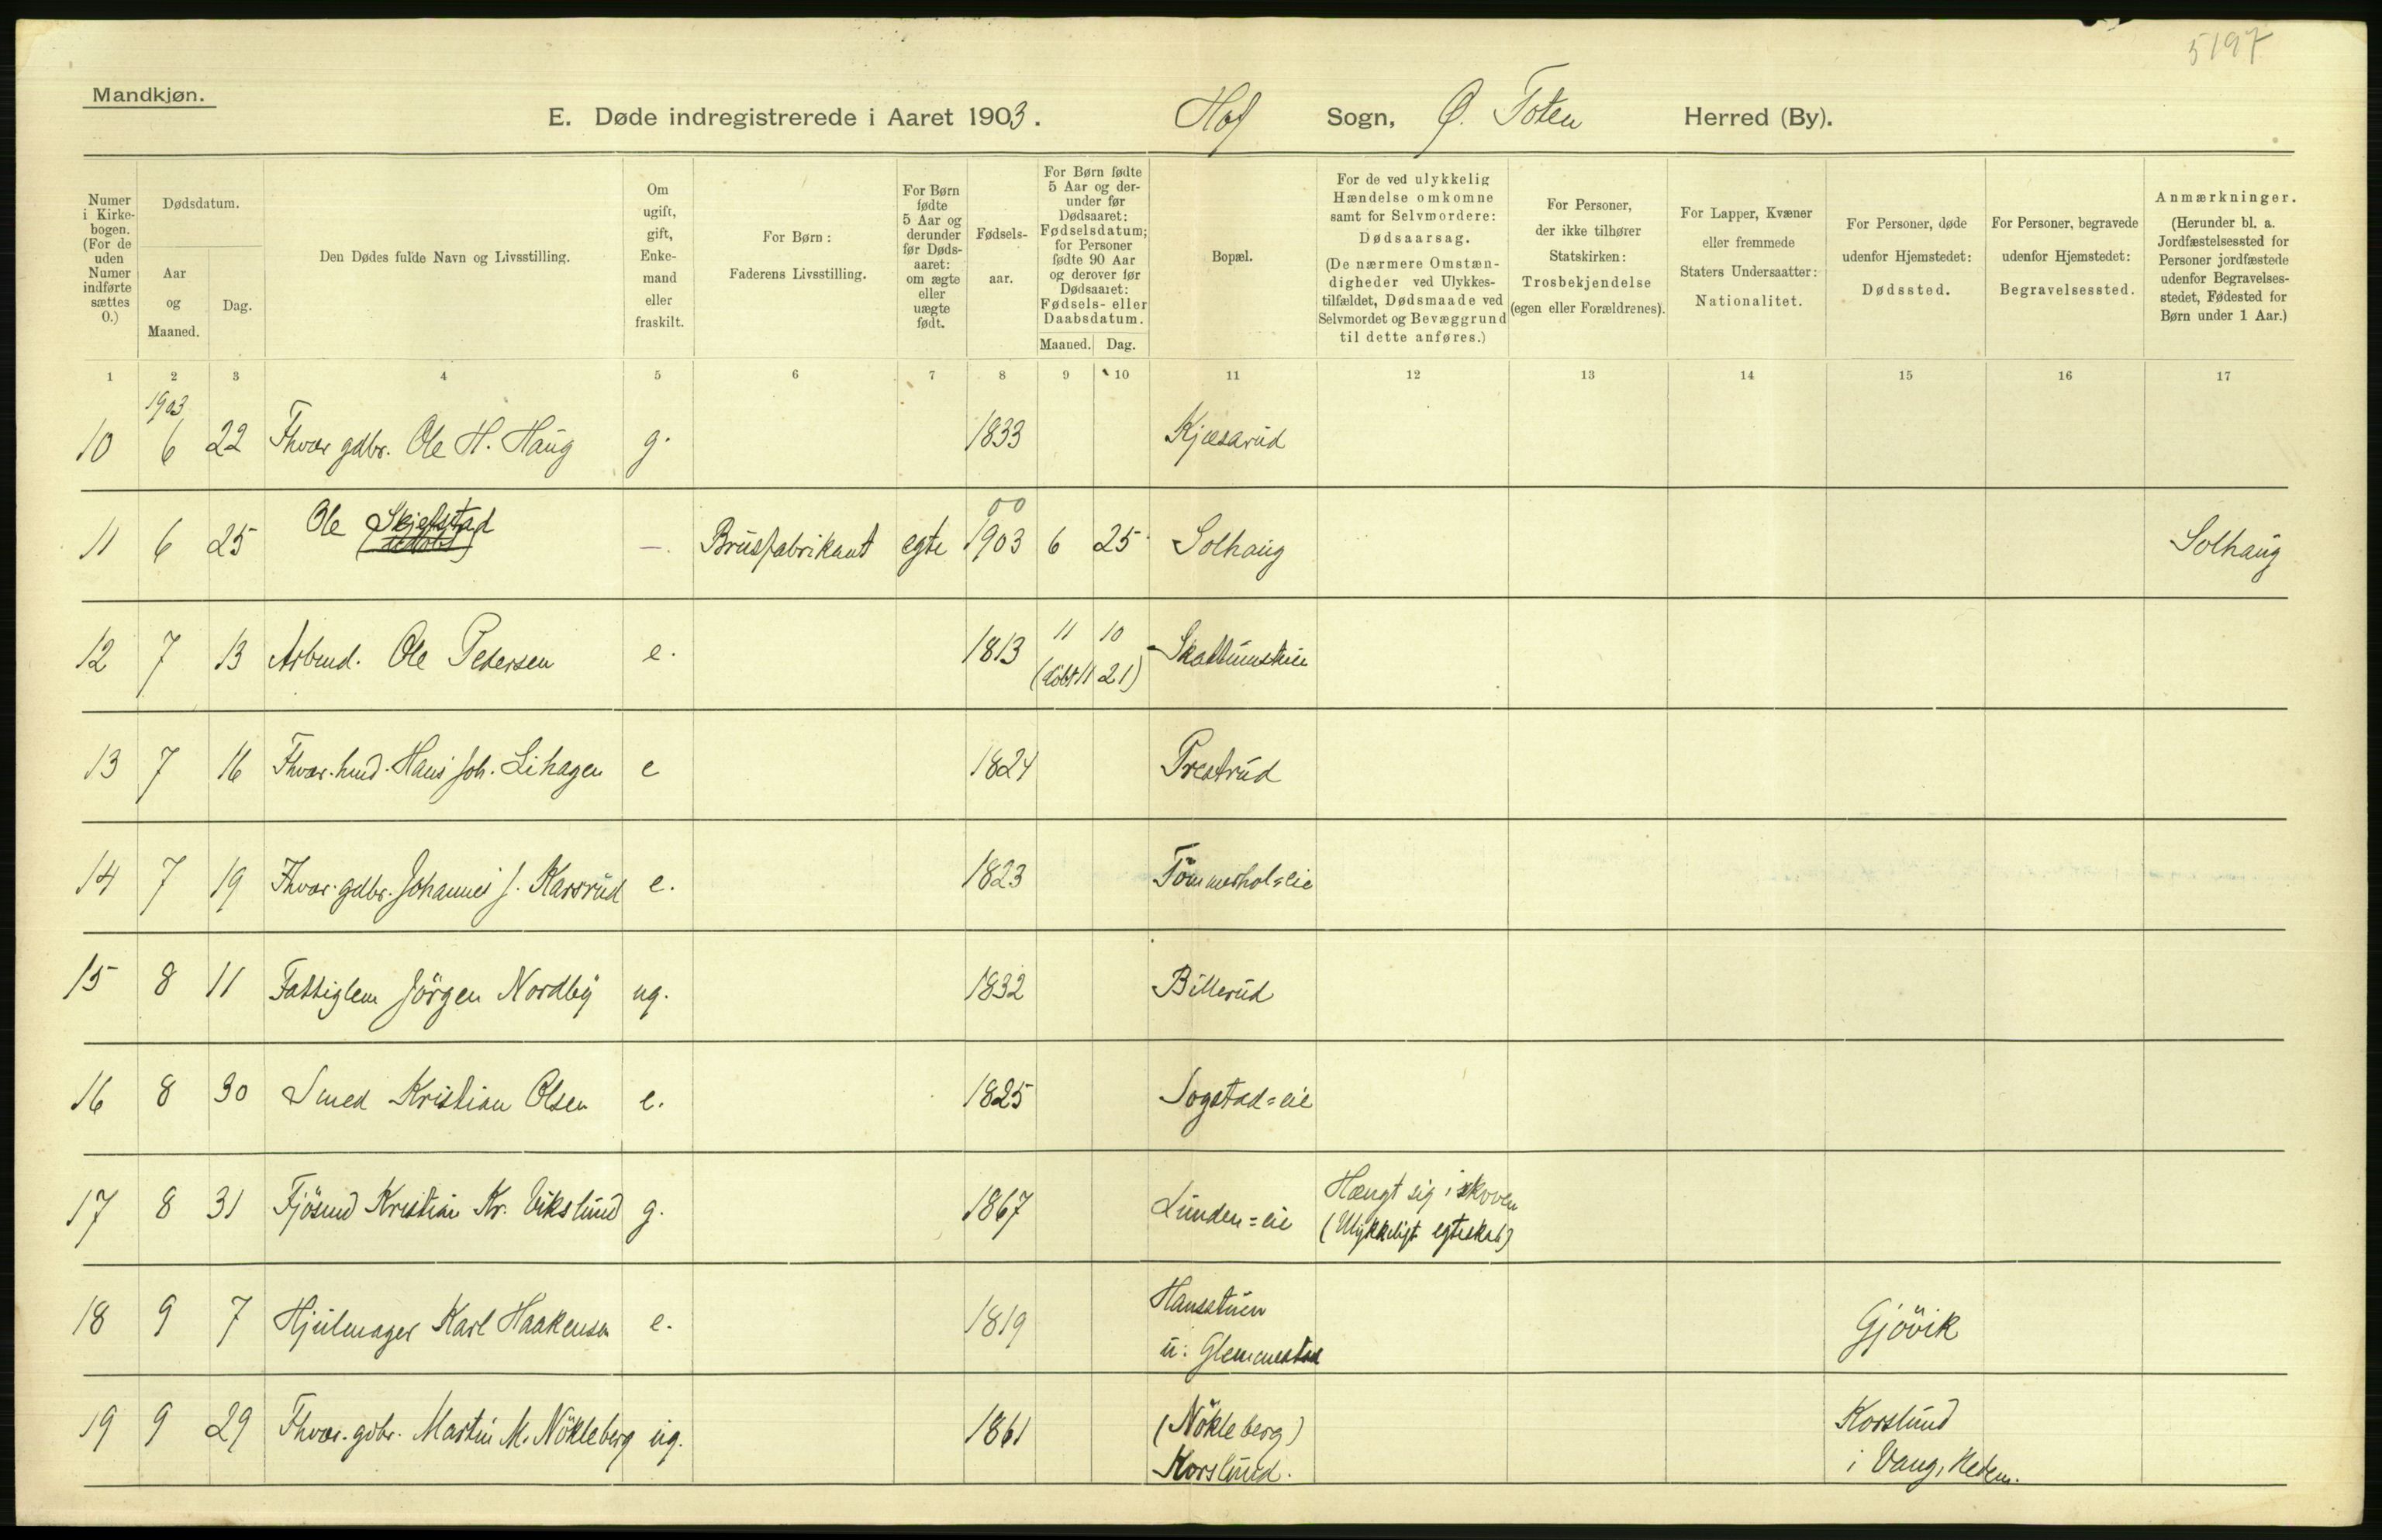 5197
Mandkjøn.
E. Døde indregistrerede i Aaret 1903. Hof Sogn, Ø. Toten Herred (By).
Numer i Kirkebogen. (For de uden Numer indførte sættes 0.)
Dødsdatum.
Aar og Maaned.
Dag.
Den Dødes fulde Navn og Livsstilling.
Om ugift, gift, Enkemand eller fraskilt.
For Børn: Faderens Livsstilling.
For Børn fødte 5 Aar og derunder før Dødsaaret: om ægte eller uægte født.
Fødselsaar.
For Børn fødte 5 Aar og derunder før Dødsaaret: Fødselsdatum; for Personer fødte 90 Aar og derover før Dødsaaret: Fødsels- eller Daabsdatum.
Maaned. Dag.
Bopæl.
For de ved ulykkelig Hændelse omkomne samt for Selvmordere: Dødsaarsag. (De nærmere Omstændigheder ved Ulykkestilfældet, Dødsmaade ved Selvmordet og Bevæggrund til dette anføres.)
For Personer, der ikke tilhører Statskirken: Trosbekjendelse (egen eller Forældrenes).
For Lapper, Kvæner eller fremmede Staters Undersaatter: Nationalitet.
For Personer, døde udenfor Hjemstedet: Dødssted.
For Personer, begravede udenfor Hjemstedet: Begravelsessted.
Anmærkninger. (Herunder bl. a. Jordfæstelsessted for Personer jordfæstede udenfor Begravelsesstedet, Fødested for Børn under 1 Aar.)
1 2 3 4 5 6 7 8 9 10 11 12 13 14 15 16 17
1903
10 6 22 Fhvær gdbr. Ole H. Haug g. 1833 Kjæsarud
00
11 6 25 Ole Skjelstad —. Brusfabrikant egte 1903 6 25 Solhaug Solhaug
12 7 13 Arbmd. Ole Pedersen e. 1813 11 10 Skattumseie
(døbt 11 21)
13 7 16 Fhvær. hmd. Hans Joh. Lihagen e 1824 Prestrud
14 7 19 Fhvær. gdbr. Johannes J. Karsrud e. 1823 Tömmerhol=eie
15 8 11 Fattiglem Jörgen Nordby ug. 1832 Billerud
16 8 30 Smed Kristian Olsen e. 1825 Sogstad=eie
17 8 31 Fjösmd Kristian Kr. Vikslund g. 1867 Lunden=eie Hængt sig i skoven
(Ulykkeligt egteskab)
18 9 7 Hjulmager Karl Haakensen e. 1819 Hansstuen Gjövik
u. Glemmestad
19 9 29 Fhvær. gdbr. Martin M. Nökleberg ug. 1861 (Nökleberg) Korslund
Korslund. i Vang, Hedem.